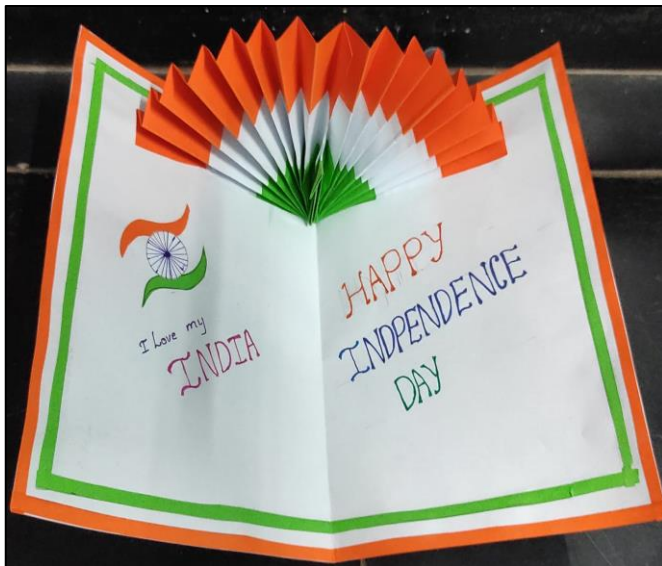 I Love my
INDIA
HAPPY
INDPENDENCE
DAY